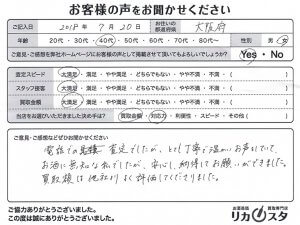 お客様の声をお聞かせください
ご記入日 2018年 7月 20日 お住いの都道府県 大阪府
年齢 20代・30代・40代・50代・60代・70代・80代〜 性別 男・女
ご意見・ご感想を弊社ホームページにお客様の声として掲載させて頂いてもよろしいでしょうか? Yes・No
査定スピード 大満足・満足・やや満足・どちらでもない・やや不満・不満・(
スタッフ接客 大満足・満足・やや満足・どちらでもない・やや不満・不満・(
買取金額 大満足・満足・やや満足・どちらでもない・やや不満・不満・(
当店をお選びいただきました決め手は? 買取金額・対応力・利便性・スピード・その他(
ご意見・ご感想などぜひお聞かせください。
電話での査定でしたが、とても丁寧で温かいお声かけで、
お酒に無知な私でしたが、安心し、納得してお願いができました。
買取額は他社より高く評価してくださりました。
ご協力ありがとうございました。
この度は誠にありがとうございました。
お酒高価買取専門店
リカスタ